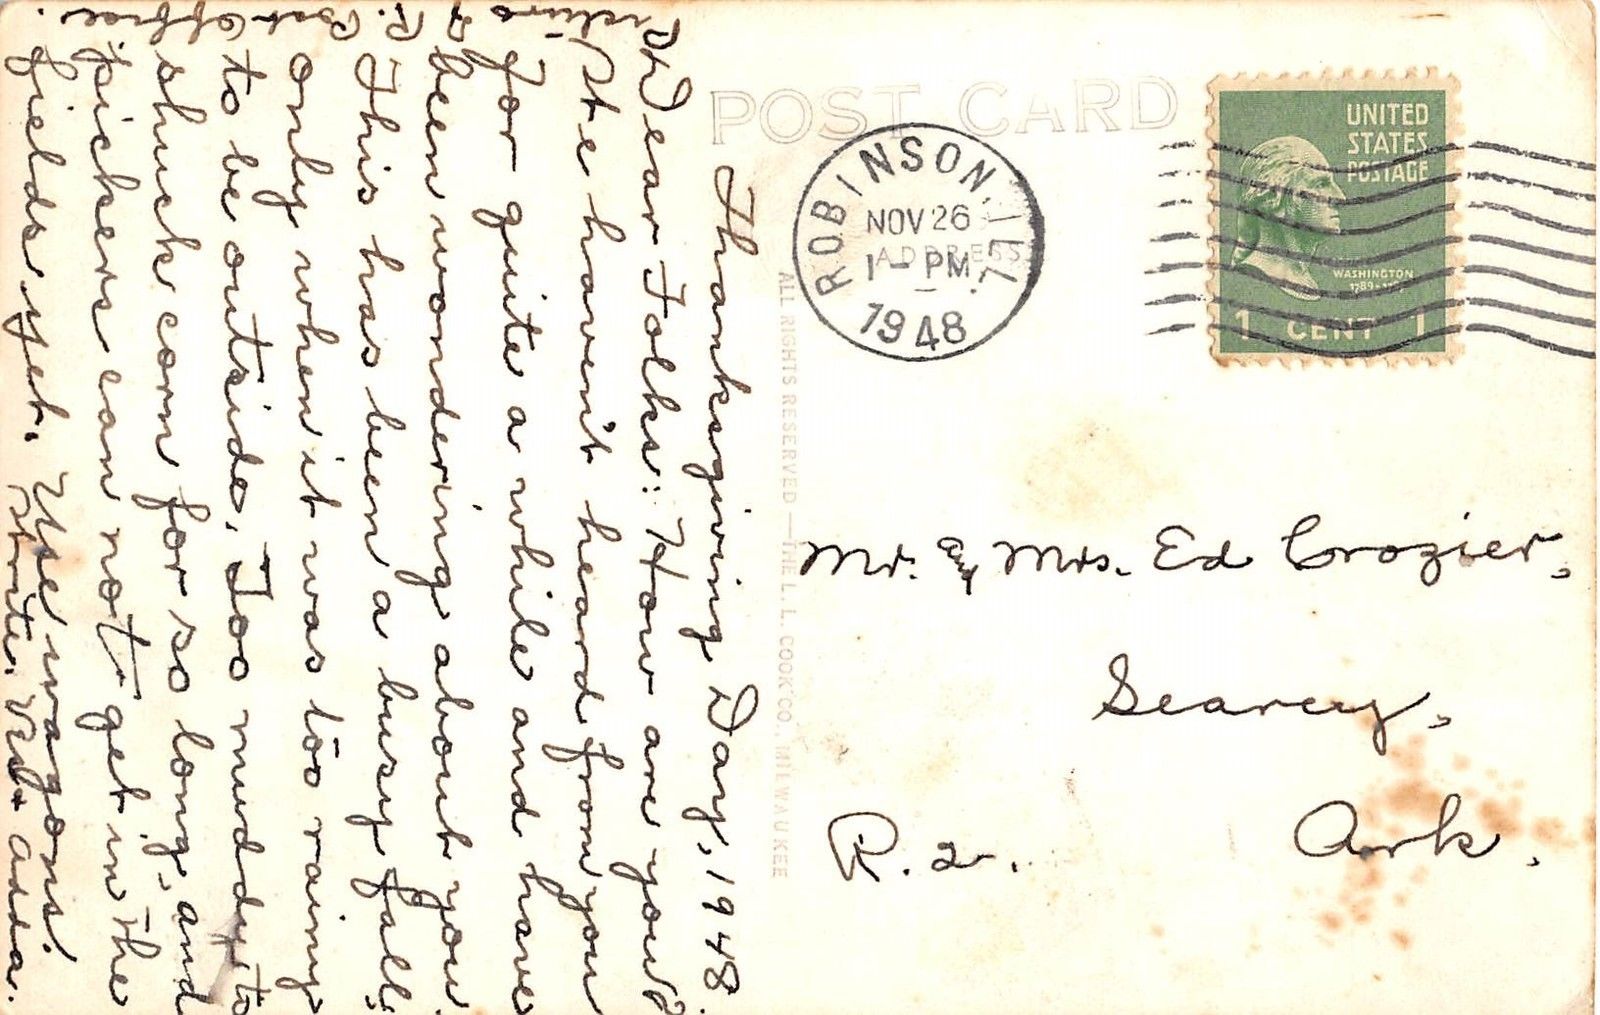 Thanksgiving Day, 1948.
Dear Folks: How are you?
We haven't heard from you
for quite a while and have
been wondering about you.
This has been a busy fall,
only when it was too rainy
to be outside. Too muddy to
shuck corn for so long, and
pickers can not get in the
fields yet. Use wagons.
Write.
Picture
R. Post Office.
POST CARD
ADDRESS
ALL RIGHTS RESERVED — THE L. L. COOK CO., MILWAUKEE
ROBINSON, ILL.
NOV 26
1 - PM
1948
UNITED
STATES
POSTAGE
WASHINGTON
1 CENT 1
Mr. & Mrs. Ed Crozier,
Searcy,
R. 2. Ark.